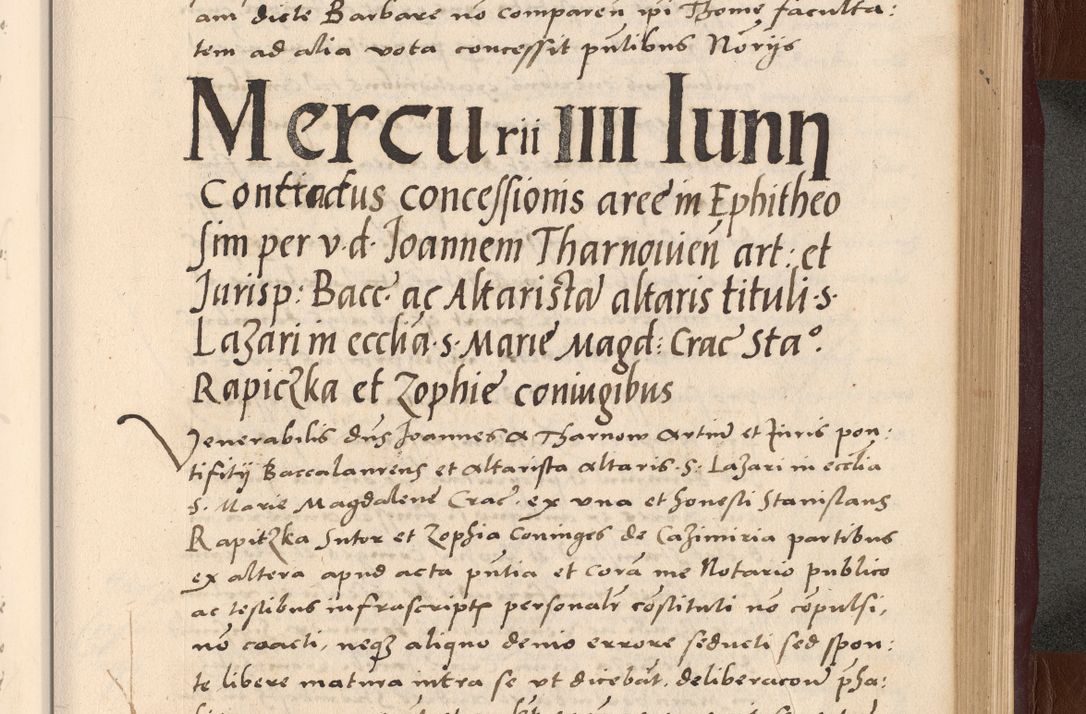 am dicte Barbare nō comparen̄ ipi Thome faculta:
tem ad alia vota concessit pn̄tibus Norijs
Mercurii IIII Iunij
Contractus concessionis aree in Ephitheo
sim per v. d. Joannem Tharnovien̄ art: et
Jurisp: Bacc. ac Altarista altaris tituli s.
Lazari in ecclīa s. Marie Magd: Crac Staº.
Rapiczka et Zophie coniugibus
Venerabilis dn̄s Joannes a Tharnow Artiū et Juris pon:
tificij Baccalaureus et altarista altaris S. Lazari in ecclīa
S. Marie Magdalene Crac. ex una et honesti Stanislaus
Rapitzka Sutor et Zophia Coniuges de Cazimiria partibus
ex altera apud acta pn̄tia et corā me Notario publico
ac testibus infrascriptꝭ personalr̄ cōstituti nō cōpulsi,
nō coacti, neqꝫ aliquo devio errore seducti sed spon:
te libere matura intra se ut dicebāt, deliberacoē pr̄ha: